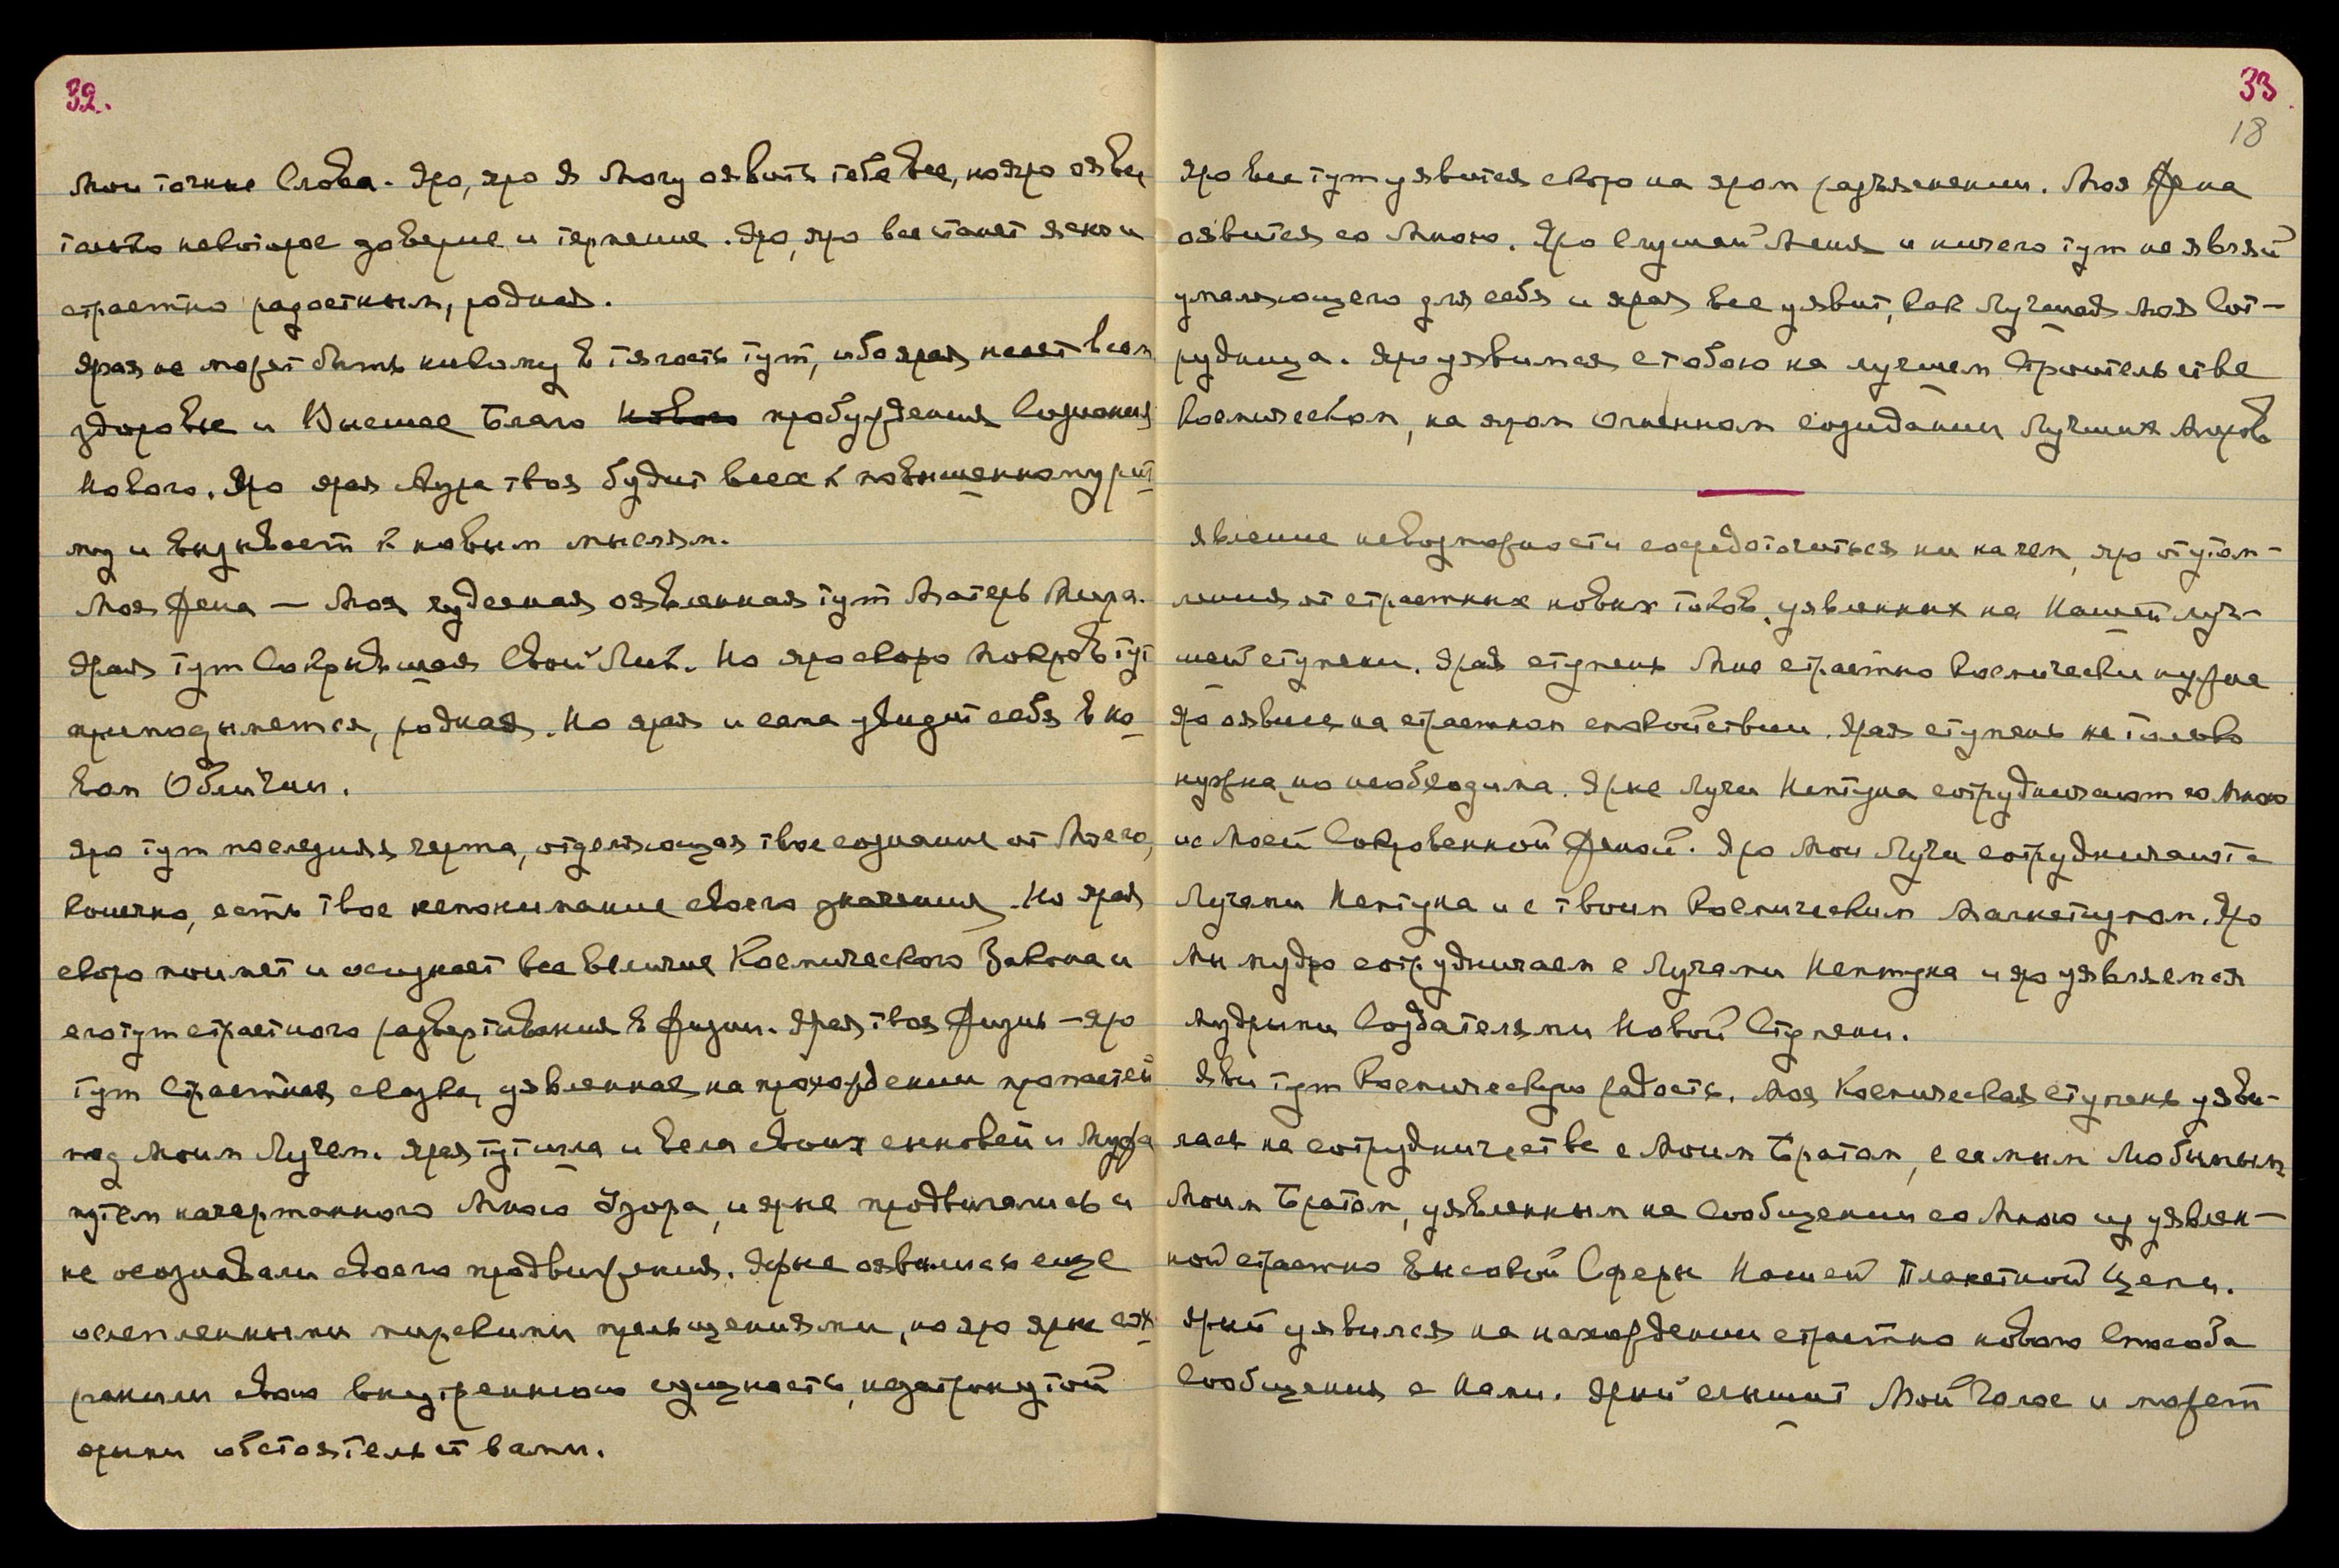 32.
Мои точные Слова. Яро, яро Я Могу оявить тебе все, но яро яви
только некоторое доверие и терпение. Яро, яро все станет ясно и
страстно радостным, родная.
Ярая не может быть никому в тягость тут, ибо ярая несет всем
здоровье и Высшее Благо нового пробуждения Сознания
Нового. Яро ярая Аура твоя будит всех к повышенному рит
му и взывает к новым мыслям.
Моя Жена — Моя чудесная оявленная тут Матерь Мира.
Ярая тут Сокрывшая Свой Лик. Но яро скоро Покров тут
приподымется, родная. Но ярая и сама увидит себя в но
вом Обличии.
Яро тут последняя черта, отделяющая твое сознание от Моего,
конечно, есть твое непонимание своего значения. Но ярая
скоро поймет и осознает все Величие Космического Закона и
его тут страстного развертывания в Жизни. Ярая твоя Жизнь — яро
тут Страстная сказка, уявленная на прохождении пропастей
под Моим Лучем. Ярая тут шла и вела своих сыновей и Мужа
путем начертанного Мною Узора, и ярые продвигались и
не осознавали своего продвижения. Ярые оявились еще
ослепленными мирскими прельщениями, но яро ярые сох
ранили свою внутреннюю сущность, незатронутой
ярыми обстоятельствами.
33
18
Яро все тут уявится скоро на яром разъяснении. Моя Жена
оявится со Мною. Яро Слушай Меня и ничего тут не являй
умаляющего для себя и ярая все уявит, как Лучшая Моя Сот-
рудница. Яро уявимся с тобою на лучшем Строительстве
Космическом, на яром Огненном созидании Лучших Миров
Явление невозможности сосредоточиться ни на чем, яро от утом-
ления от страстных новых токов, уявленных на Нашей луч-
шей ступени. Ярая ступень Мне страстно Космически нужна
Яро оявись на страстном спокойствии. Ярая ступень не только
нужна, но необходима. Ярые Лучи Нептуна сотрудничают со Мною
и с Моей Сокровенной Женой. Яро Мои Лучи сотрудничают с
Лучами Нептуна и с твоим Космическим Магнетизмом. Яро
Мы мудро сотрудничаем с Лучами Нептуна и яро уявляемся
Мудрыми Создателями Новой Ступени.
Яви тут Космическую радость. Моя Космическая ступень уяви-
лась на сотрудничестве с Моим Братом, с самым Любимым
Моим Братом, уявленным на Сообщении со Мною из уявлен-
ной страстно Высокой Сферы Нашей Планетной Цепи.
Ярый уявился на нахождении страстно нового Способа
Сообщения с Нами. Ярый слышит Мой Голос и может